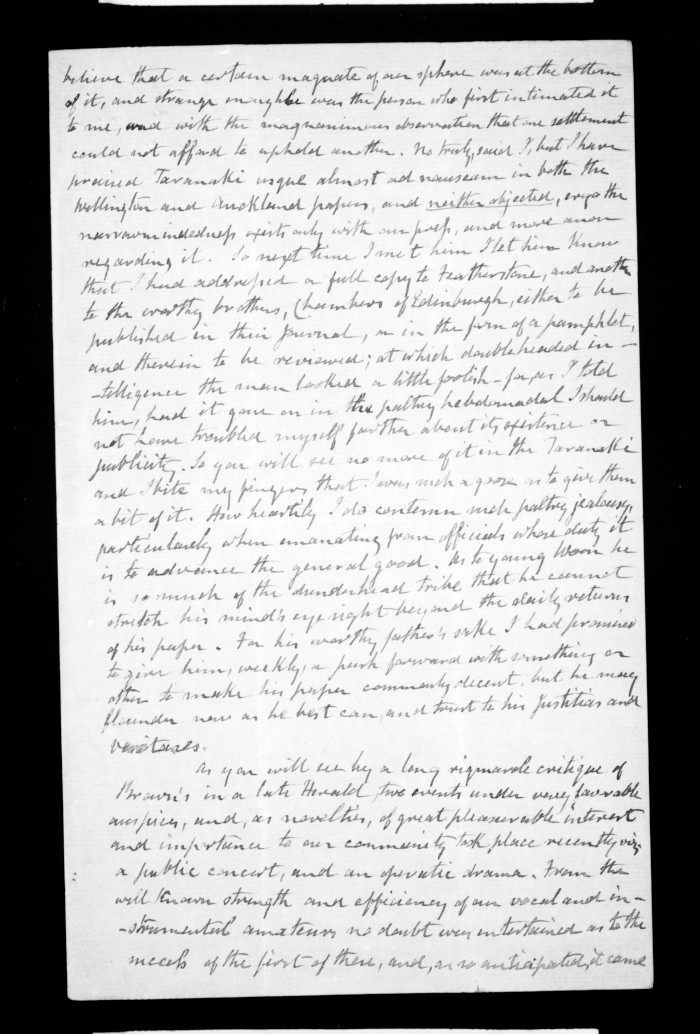 believe that a certain magnate of our sphere was at the bottom
of it, and strange enough he was the person who first intimated it
to me, and with the magnanimous observation that one settlement
could not afford to uphold another. No truly, said I, but I have
praised Taranaki usque almost ad nauseam in both the
Wellington and Auckland papers, and neither objected, ergo the
narrowmindedness exists only with our press, and more anon
regarding it. So next time I met him I let him know
that I had addressed a full copy to Featherstone, and another
to the worthy brothers, Chambers of Edinburgh, either to be
published in their Journal, or in the form of a pamphlet,
and therein to be reviewed; at which doubleheaded in-
-telligence the man looked a little foolish - for, as I told
him, had it gone on in the paltry hebdomadal I should
not have troubled myself farther about its existence or
publicity. So you will see no more of it in the Taranaki
and I bite my fingers that I was such a goose as to give them
a bit of it. How heartily I do contemn such paltry jealousy,
particularly when emanating from officials whose duty it
is to advance the general good. As to young Woon he
is so much of the dunderhead tribe that he cannot
stretch his mind's eye sight beyond the daily returns
of his paper. For his worthy father's sake I had promised
to give him, weekly, a push forward with something or
other to make his paper commonly decent, but he may
flounder now as he best can, and trust to his Justitias and
veritases.
As you will see by a long rigmarole critique of
Brown's in a late Herald, two events under very favorable
auspices, and, as novelties, of great pleasurable interest
and importance to our community took place recently viz,
a public concert, and an operatic drama. From the
well known strength and efficiency of our vocal and in-
-strumental amateurs no doubt was entertained as to the
success of the first of these, and, as so anticipated, it came